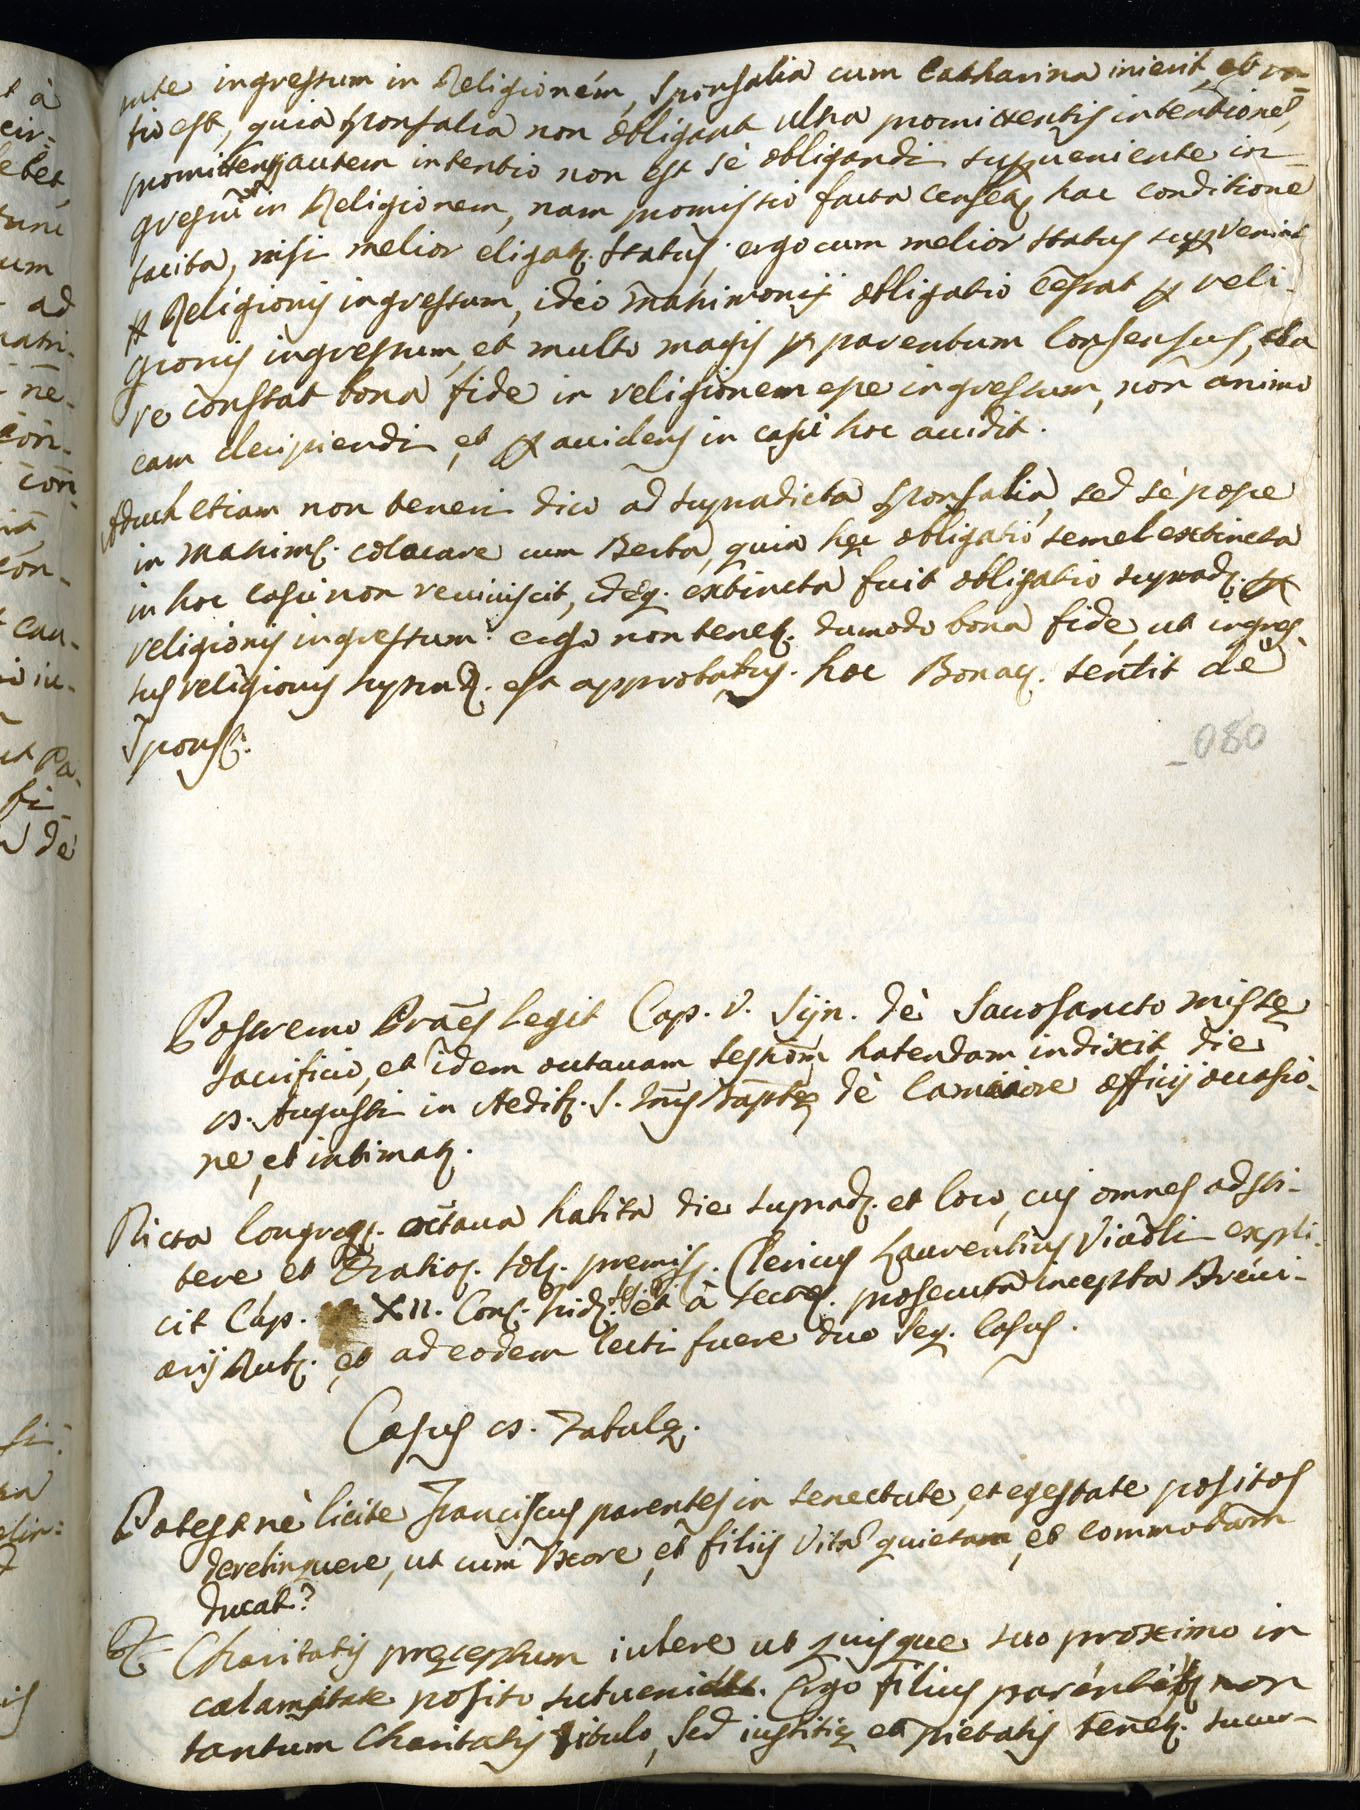 ante ingressum in Religioném, sponsalia cum Catharina inierit, et ra-
tio est, quia sponsalia non obligant ultra promittentis intentioné,
promittentis autem intentio non est sè obligandi superueniente in-
gressu in Religionem, nam promissio facta censetr hac conditione
tacita, nisi melior eligatr. status, ergo cum melior status superveniat
per Religionis ingressum, ideo matrimonij obligatio cessat per reli-
gionis ingressum, et multo magis per parentum Consensus, cla
re constat bona fide in religionem esse ingressum, non animo
eam decipiendi, et per accidens in casu hoc accidit.
Aduch etiam non teneri dico ad supradicta sponsalia, sed sè posse
in matrim. colocare cum Berta, quia hęc obligatio semel extincta
in hoc casu non reuiuiscit, extincta fuit obligatio suprad. per
religionis ingressum: ergo non tenetr. dumodo bona fide, ut ingres-
sus religionis suprad. est approbatus. hoc Bonac. sentit de
Spons:
080
Postremo Præs legit Cap. V. Syn. dè Sacrosancto missę
sacrificio, et idem octauam sessionem habendam indixit die
Augusti in Aedib. S. Jnis Baptę dè officij occasio-
ne, et intimatr.
Dicta Congreg. octaua habita die suprad. et loco, cui omnes adsti-
tere et Oratio. sol. premis. Clericus Laurentius Viadli expli-
cit Cap. XII. Conc. Trid. et à secret. prosecuta incepta Breui-
arij Rub. et ad eodem lecti fuere duo seq. Casus.
Casus Tabulę.
Potest nè licite Franciscus parentes in senectute, et egestate positos
derelinquere, ut cum Vxore, et filiis Vitã quietam, et commodam
ducat?
R. Charitatis pręceptum iubere ut quisque suo proximo in
calamitate posito subueniat. Ergo filius parentibus non
tantum Charitatis titulo, sed iustitię et pietatis tenetr. succur-